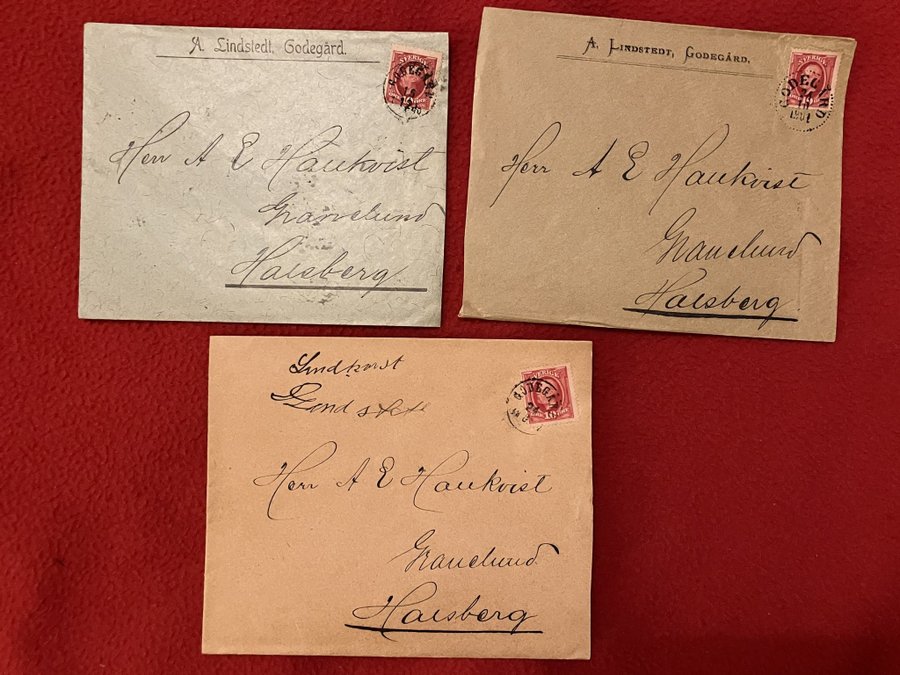 A. Lindstedt, Godegård.
SVERIGE
GODEGÅRD
18
Herr A E Haukvist
Granelund
Halsberg
A. LINDSTEDT, GODEGÅRD.
GODEGÅRD
24
10
1901
Herr A E Haukvist
Granelund
Halsberg
Lindkvist
SVERIGE
10
GODEGÅRD
24
Herr A E Haukvist
Granelund
Halsberg